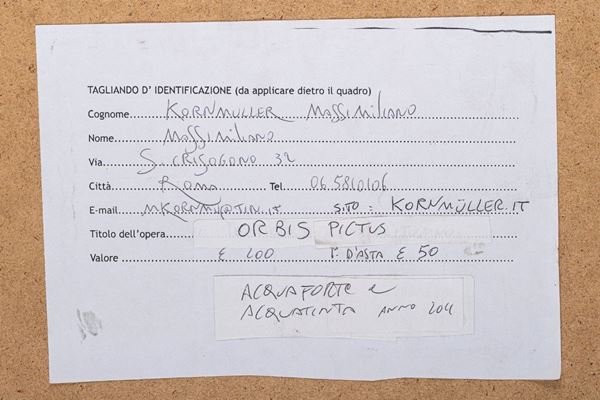 TAGLIANDO D' IDENTIFICAZIONE (da applicare dietro il quadro)
Cognome KORNMULLER MASSIMILIANO
Nome MASSIMILIANO
Via S. CRISOGONO 32
Città ROMA Tel. 06.5810106
E-mail SITO: KORNMÜLLER.IT
Titolo dell'opera ORBIS PICTUS
Valore € 200 P. D'ASTA € 50
ACQUAFORTE e
ACQUATINTA ANNO 2011